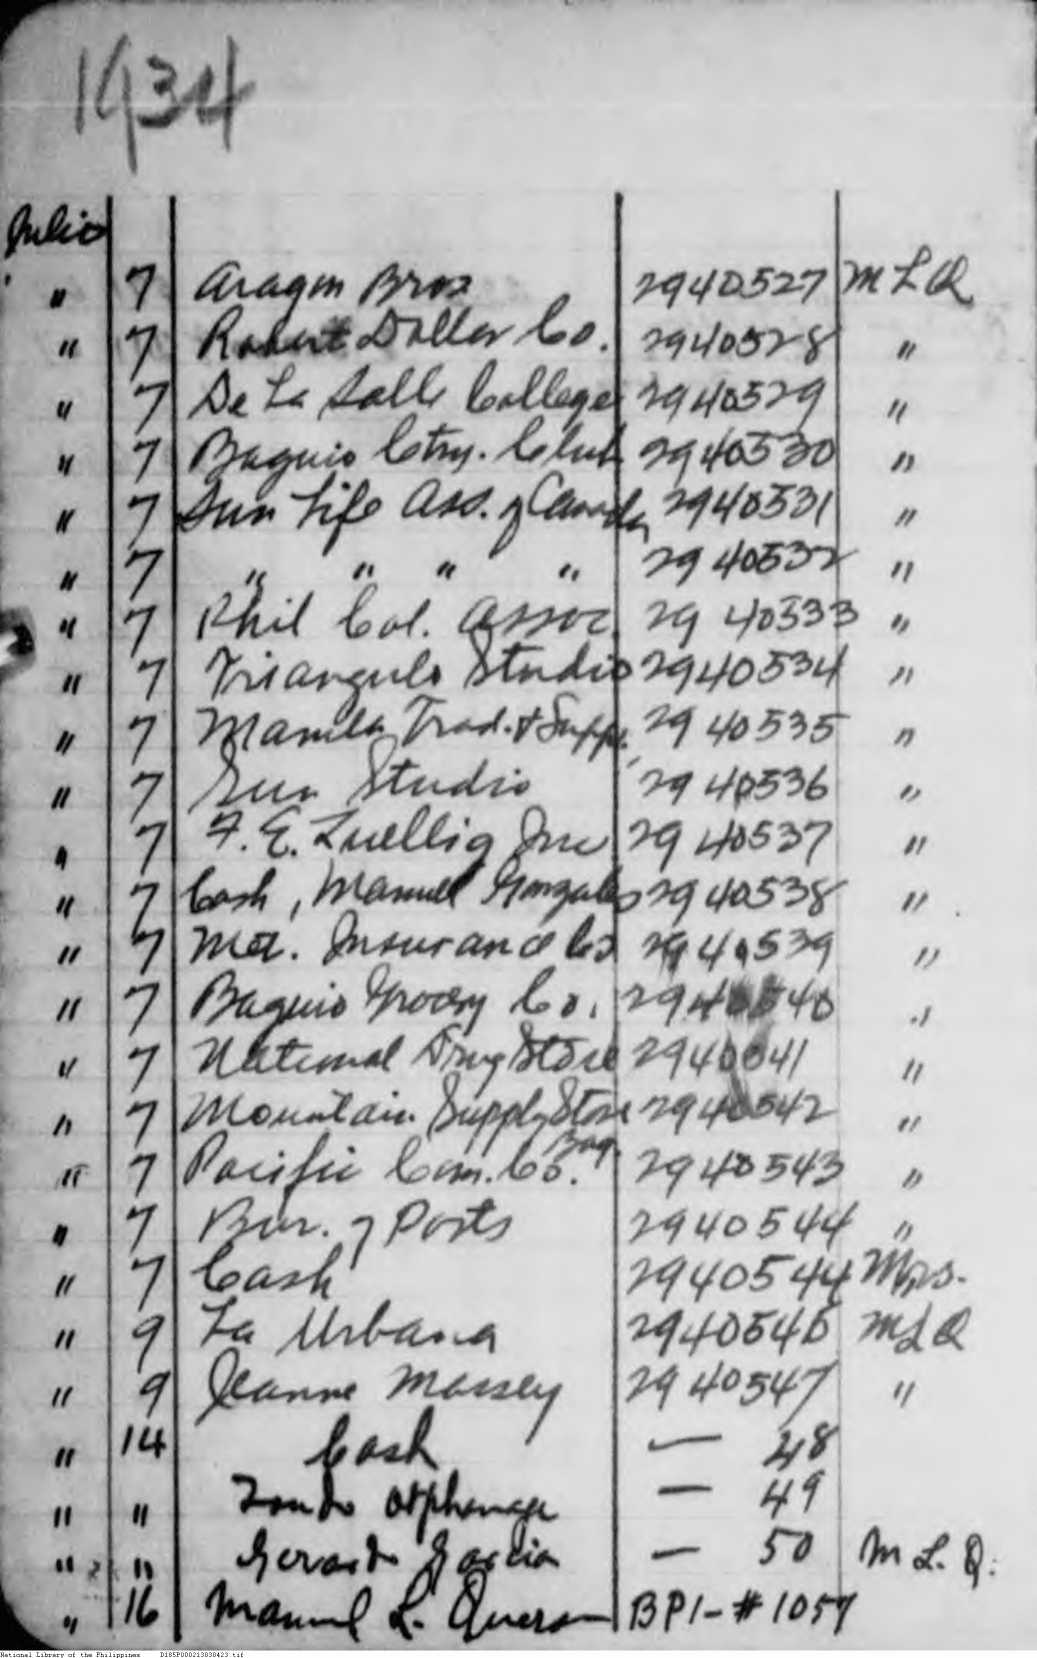 1934
Julio
" 7 Aragon Bros 2940527 M L Q
" 7 Robert Dollar Co. 2940528 "
" 7 De La Salle College 2940529 "
" 7 Baguio Ctry. Club 2940530 "
" 7 Sun Life Ass. of Canada 2940531 "
" 7 " " " " 2940532 "
" 7 Phil Col. Assoc. 2940533 "
" 7 Triangulo Studio 2940534 "
" 7 Manila Trad. & Supp. 2940535 "
" 7 Sun Studio 2940536 "
" 7 F. E. Zuellig Inc 2940537 "
" 7 Cash, Manuel Gonzales 2940538 "
" 7 Met. Insurance Co 2940539 "
" 7 Baguio Grocery Co. 2940540 "
" 7 National Drug Store 2940541 "
" 7 Mountain Supply Store 2940542 "
Bag.
" 7 Pacific Com. Co. 2940543 "
" 7 Bur. of Posts 2940544 "
" 7 Cash 2940544 Mrs.
" 9 La Urbana 2940546 MLQ
" 9 Jeanne Massey 2940547 "
" 14 Cash — 48
" " Tondo Orphanage — 49
" " Gerardo Garcia — 50 M L. Q.
" 16 Manuel L. Quezon BPI - # 1057
National Library of the Philippines D185P000213838423.tif